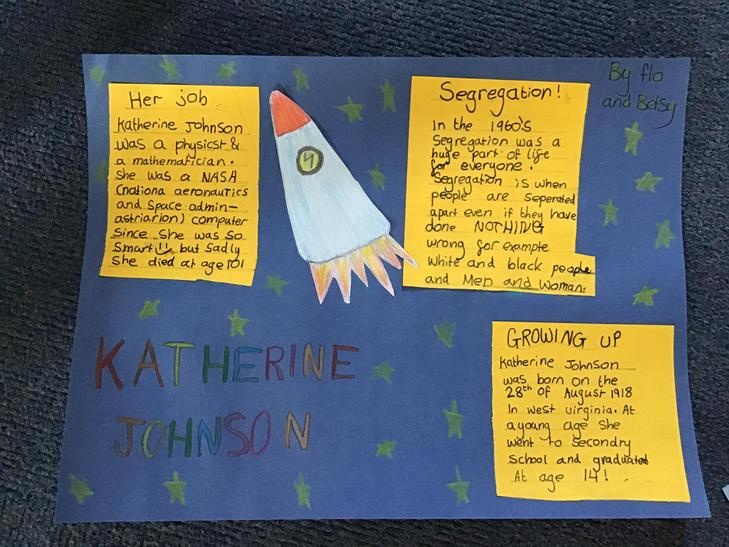 Her job
Katherine Johnson
was a physicst &
a mathematician.
She was a NASA
(nationa aeronautics
and Space admin-
astriarion) computer
Since She was so
Smart!! but Sadly
She died at age 101
4
Segregation!
In the 1960's
Segregation was a
huge part of life
for everyone.
Segregation is when
people are seperated
apart even if they have
done NOTHING
wrong for example
White and black people
and Men and Woman.
By flo
and Betsy
KATHERINE
JOHNSON
GROWING UP
Katherine Johnson
was born on the
28th of August 1918
In west virginia. At
a young age She
went to Secondry
School and graduated
At age 14!